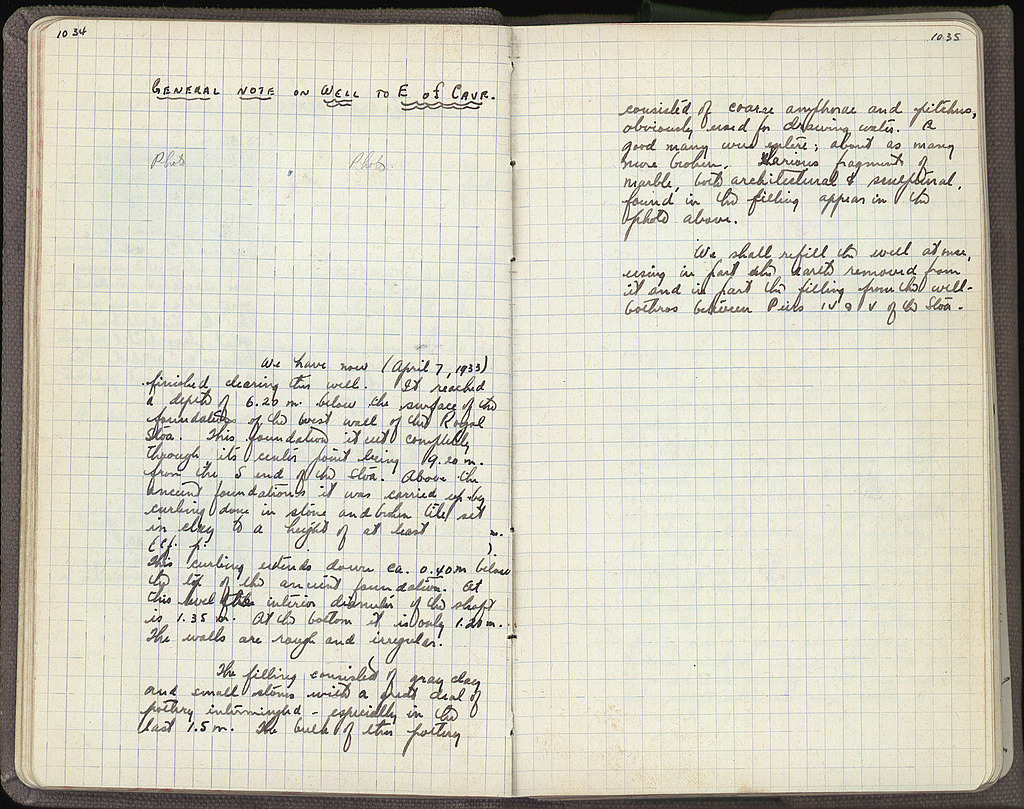 1034
GENERAL NOTE ON WELL TO E of CAVE.
Photo Photo
We have now (April 7, 1933)
finished clearing this well. It reached
a depth of 6.20 m. below the surface of the
foundations of the west wall of the Royal
Stoa. This foundation it cut completely
through its center point being 9.20 m.
from the S end of the Stoa. Above the
ancient foundations it was carried up by
curbing done in stone and broken tile set
in clay to a height of at least m.
(Cf. p. ).
This curbing extends down ca. 0.40 m below
the top of the ancient foundation. At
this level the interior diameter of the shaft
is 1.35 m. At the bottom it is only 1.20 m.
The walls are rough and irregular.
The filling consisted of gray clay
and small stones with a great deal of
pottery intermingled - especially in the
last 1.5 m. The bulk of this pottery
1035
consisted of coarse amphorae and pitchers,
obviously used for drawing water. A
good many were entire; about as many
more broken. Various fragments of
marble, both architectural & sculptural,
found in the filling appear in the
photo above.
We shall refill the well at once,
using in part the earth removed from
it and in part the filling from the well-
bothros between Piers IV & V of the Stoa.